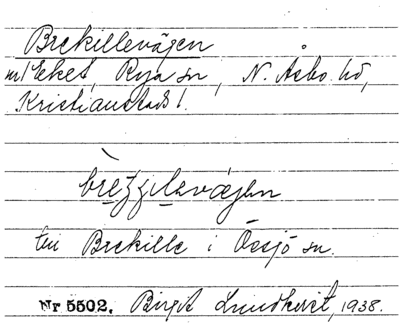 Brekillevägen
Eket, Rya sn, N. Åsbo hd,
Kristianstads l.
till Brekille i Össjö sn.
Nr 5502. Birgit Lundkvist, 1938.